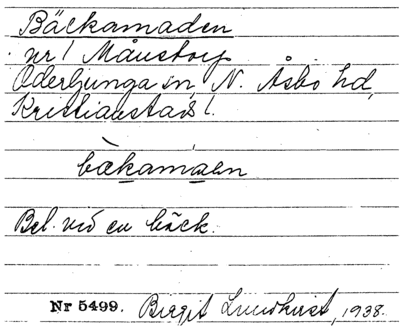 Bäckamaden
nr 1 Månstorp
Oderljunga sn, N. Åsbo hd,
Kristianstads l.
bækamaen
Bel. vid en bäck.
Nr 5499. Birgit Lundkvist, 1938.